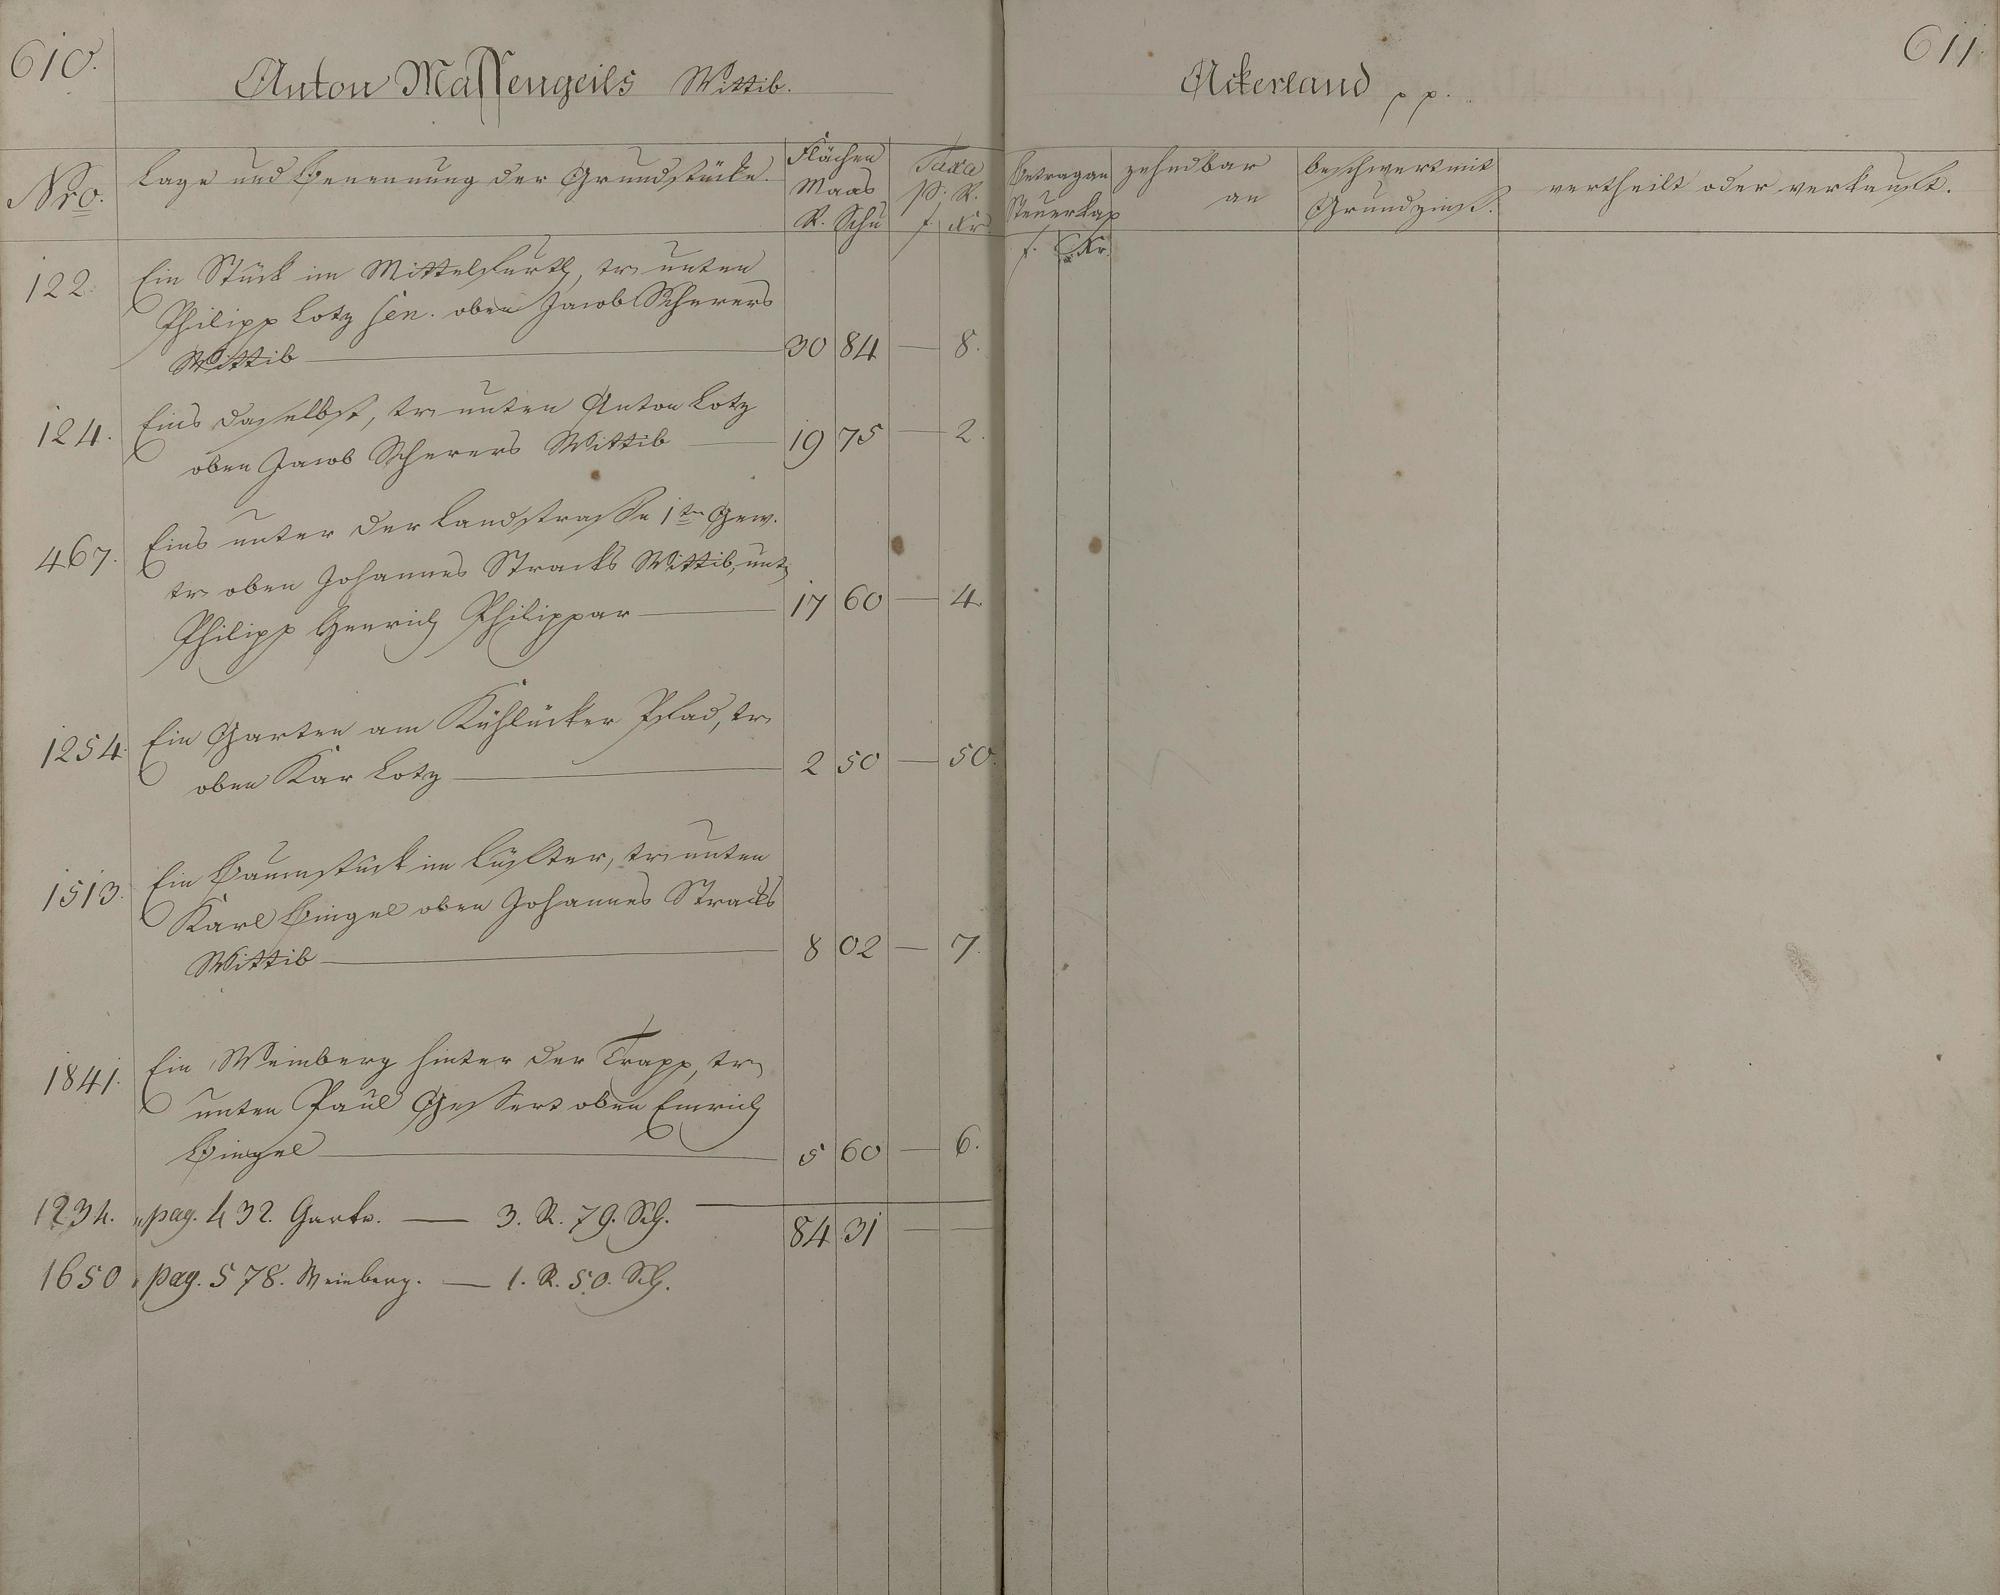 610.
Anton Massengeils Wittib.
Nro.
Lage und Benennung der Grundstücke.
Flächen
Maas
R. Schu
Taxa
p. R.
f. Kr.
122.
Ein Stück im Mittelfurth, tr. unten
Philipp Lotz sen. oben Jacob Scherers
Wittib — 30 84 — 8.
124.
Eins daselbst, tr. unten Anton Lotz
oben Jacob Scherers Wittib — 19 75 — 2.
467.
Eins unter der Landstrasse 1te Gew.
tr. oben Johannes Stracks Wittib, unt.
Philipp Henrich Philippar — 17 60 — 4.
1254.
Ein Garten am Kühlücker Pfad, tr.
oben Kar Lotz — 2 50 — 50.
1513.
Ein Baumstück im tr. unten
Karl Bingel oben Johannes Stracks
Wittib — 8 02 — 7.
1841.
Ein Weinberg hinter der Trapp, tr.
unten Paul Gessert oben Emrich
Bingel — 5 60 — 6.
84 31 — —
1234. " pag. 432. Garten. — 3. R. 79. Sch.
1650 " pag. 578. Weinberg. — 1. R. 50. Sch.
611.
Ackerland p. p.
Betrag an
Steuerkap
f. Kr.
zehndbar
an
beschwert mit
Grundzinß.
vertheilt oder verkauft.